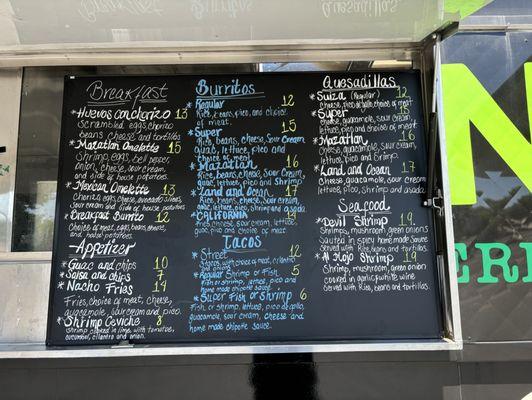 Breakfast
*Huevos con chorizo 13
Scrambled eggs, chorizo
beans, cheese and tortillas
*Mazatlan Omelette 15
Shrimp, eggs, bell peppers
onion, cheese, sour cream
and side of house potatoes
*Mexican Omelette 13
Chorizo, eggs, avocado slices,
cheese, sour cream and side
of house potatoes.
*Breakfast Burrito 12
Choice of meat, eggs, beans, cheese,
and house potatoes.
Appetizer
*Guac and chips 10
*Salsa and chips 7
*Nacho Fries 14
Fries, choice of meat, cheese,
guacamole, sour cream and pico.
*Shrimp Ceviche 8
Shrimp cooked in lime, with tomatoes,
cucumber, cilantro and onion.
Burritos
*Regular 12
Rice, beans, pico, and choice
of meat.
*Super 15
Rice, beans, cheese, Sour Cream
guac, lettuce, pico and
choice of meat.
*Mazatlan 16
Rice, beans, cheese, Sour Cream,
guac, lettuce, pico and shrimp
*Land and Ocean 17
Rice, beans, cheese, Sour Cream
guac, lettuce, pico, shrimp and asada
*CALIFORNIA 14
Fries, cheese, sour cream, guac
and choice of meat.
Tacos
*Street 12
3 tacos with choice of meat, onions,
cilantro and side of rice and beans.
*Regular Shrimp or Fish 5
Fish or shrimp, lettuce, pico and
home made chipotle sauce
*Super Fish or Shrimp 6
Fish or shrimp, lettuce, pico de gallo,
guacamole, sour cream, cheese and
home made chipotle sauce.
Quesadillas
*Suiza (Regular) 12
Cheese, pico de gallo, choice of meat.
*Super 15
Cheese, guacamole, sour cream,
lettuce, pico and choice of meat.
*Mazatlan 16
Cheese, guacamole, Sour cream,
lettuce, pico and Shrimp.
*Land and Ocean 17
Cheese guacamole, Sour cream
lettuce, pico, shrimp and asada
Seafood
*Devil Shrimp 19
Shrimps, mushroom, green onions
Sauteed in spicy home made Sauce
served with Rice, beans and tortillas.
*Al Mojo Shrimp 19
Shrimp, mushroom, green onion
cooked in garlic, white wine
served with Rice, beans and tortillas.
N
ERI